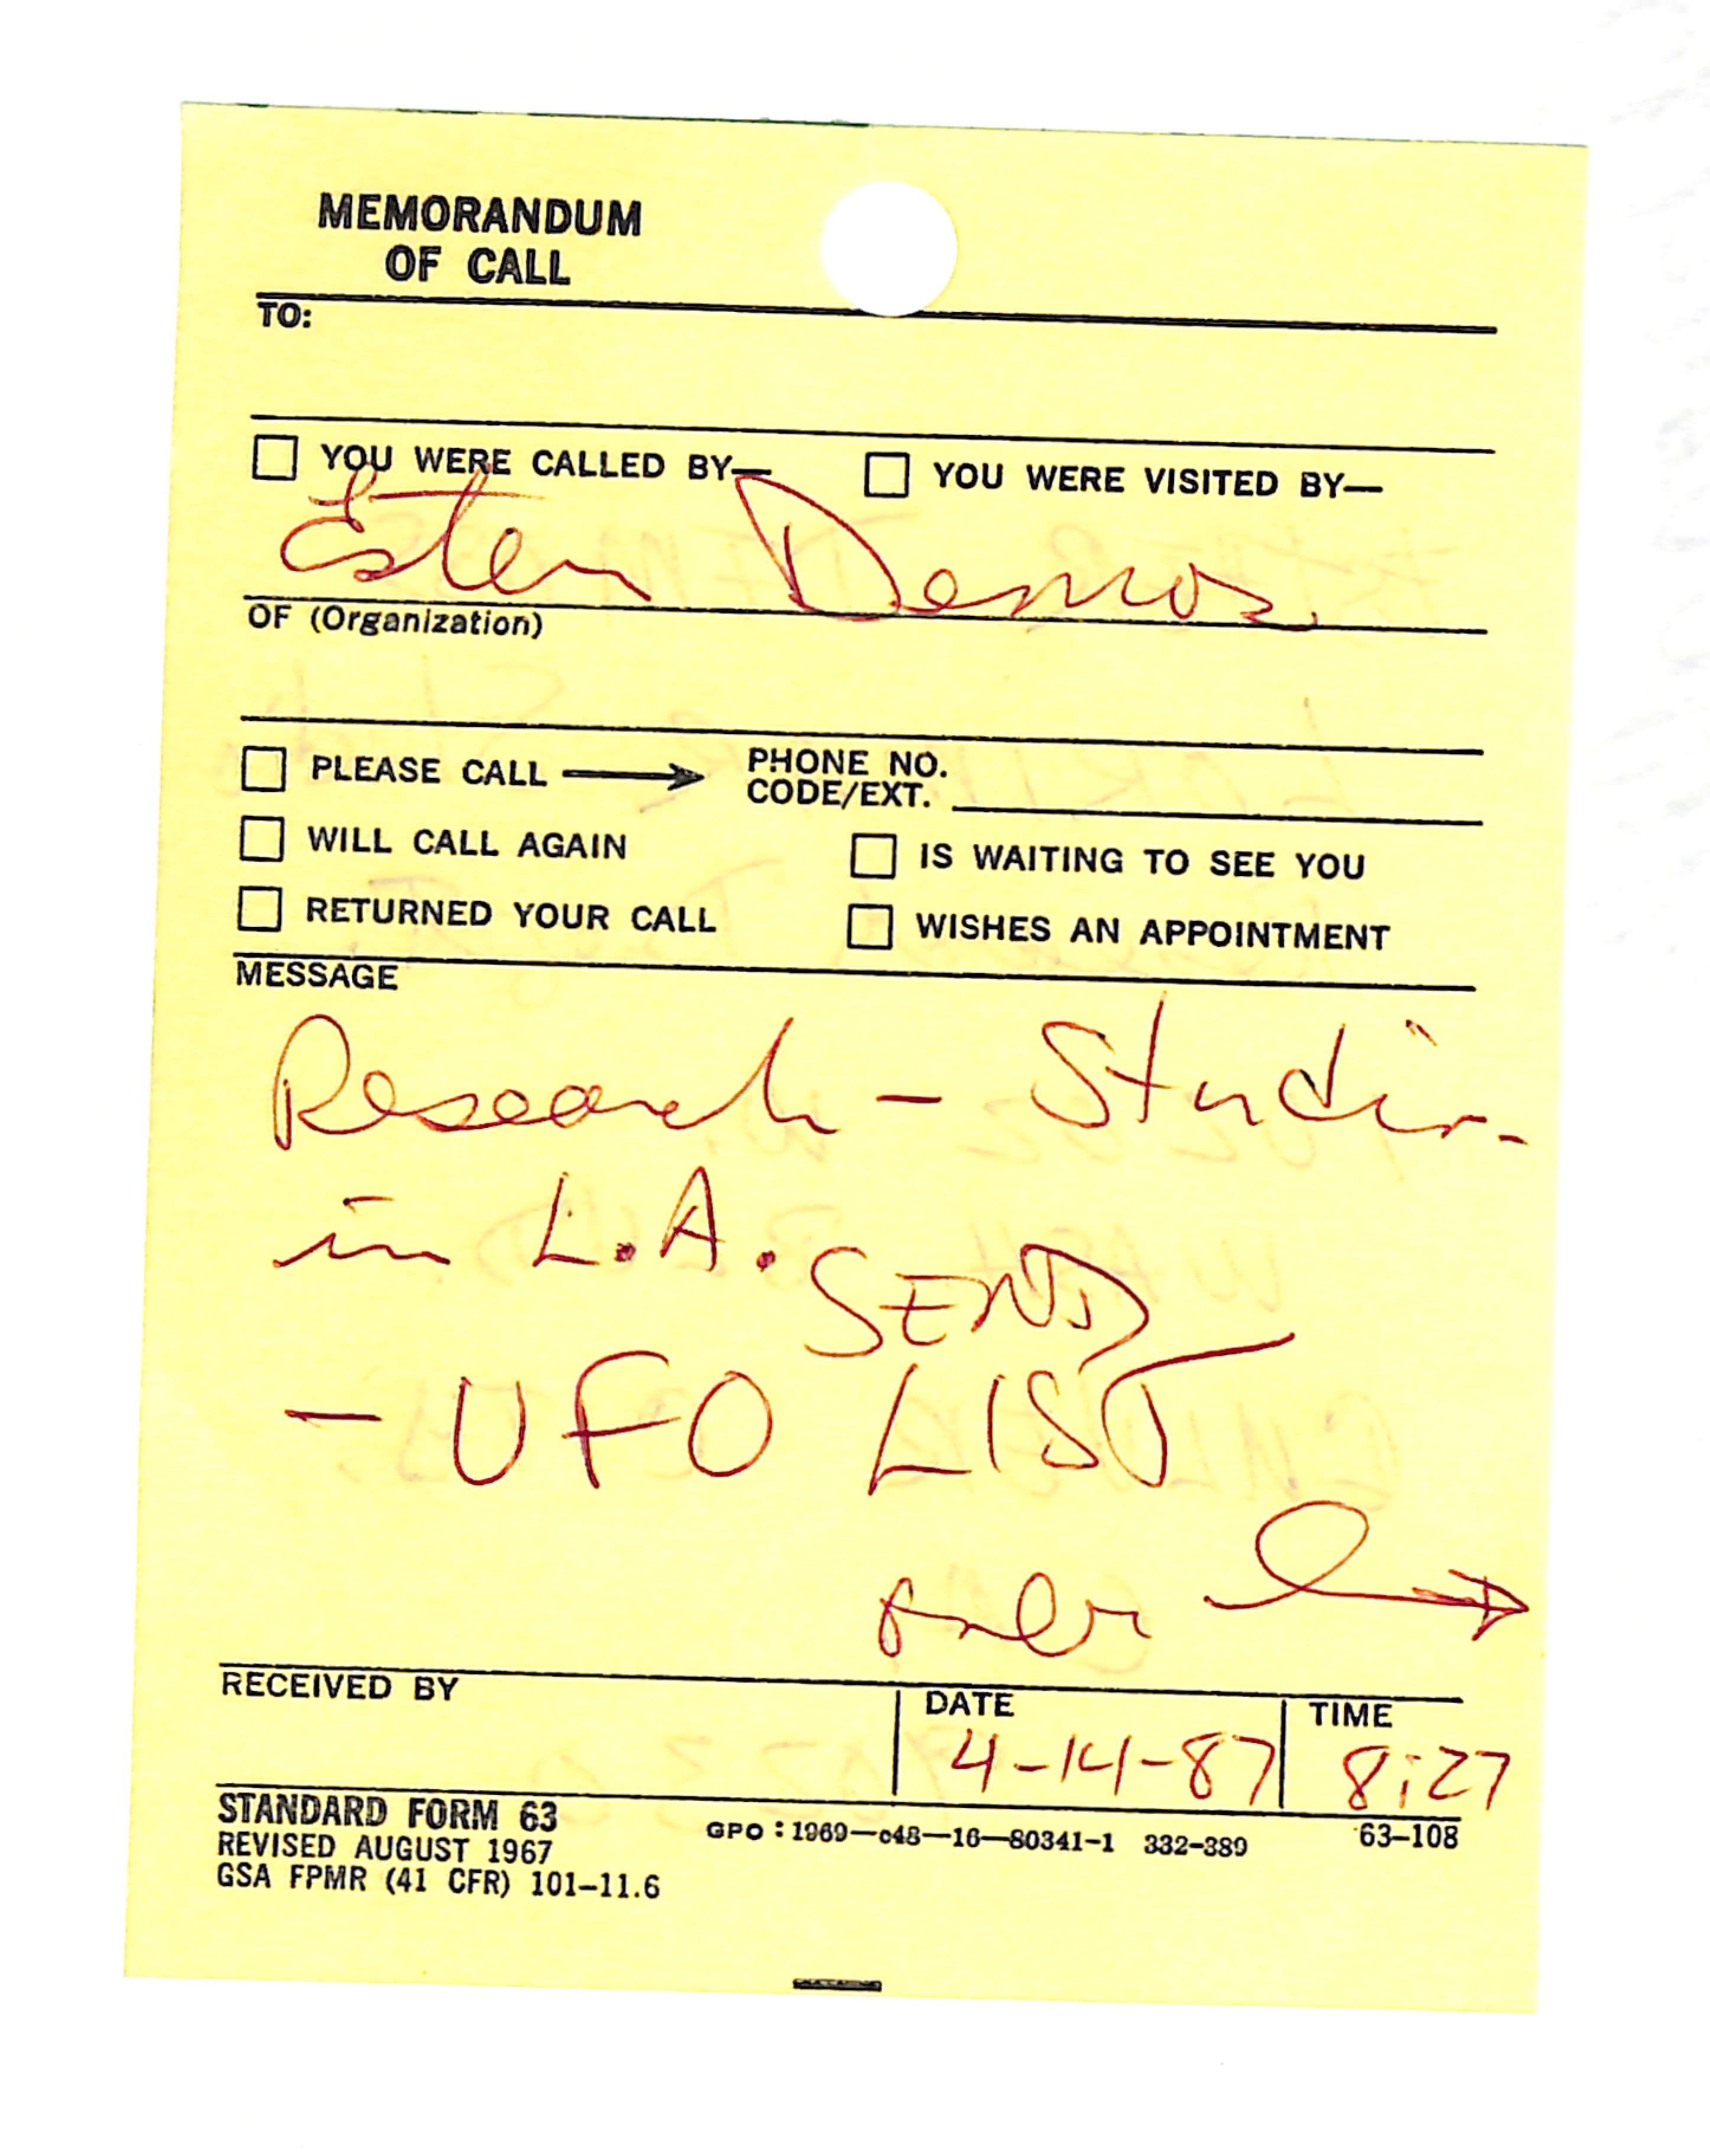 MEMORANDUM
OF CALL
TO:
YOU WERE CALLED BY— YOU WERE VISITED BY—
Ester Demos
OF (Organization)
PLEASE CALL → PHONE NO.
CODE/EXT.
WILL CALL AGAIN IS WAITING TO SEE YOU
RETURNED YOUR CALL WISHES AN APPOINTMENT
MESSAGE
Research -
in L.A.
SEND
- UFO LIST
RECEIVED BY DATE TIME
4-14-87 8:27
STANDARD FORM 63
REVISED AUGUST 1967
GSA FPMR (41 CFR) 101-11.6
GPO : 1969—c48—16—80341-1 332-389 63-108